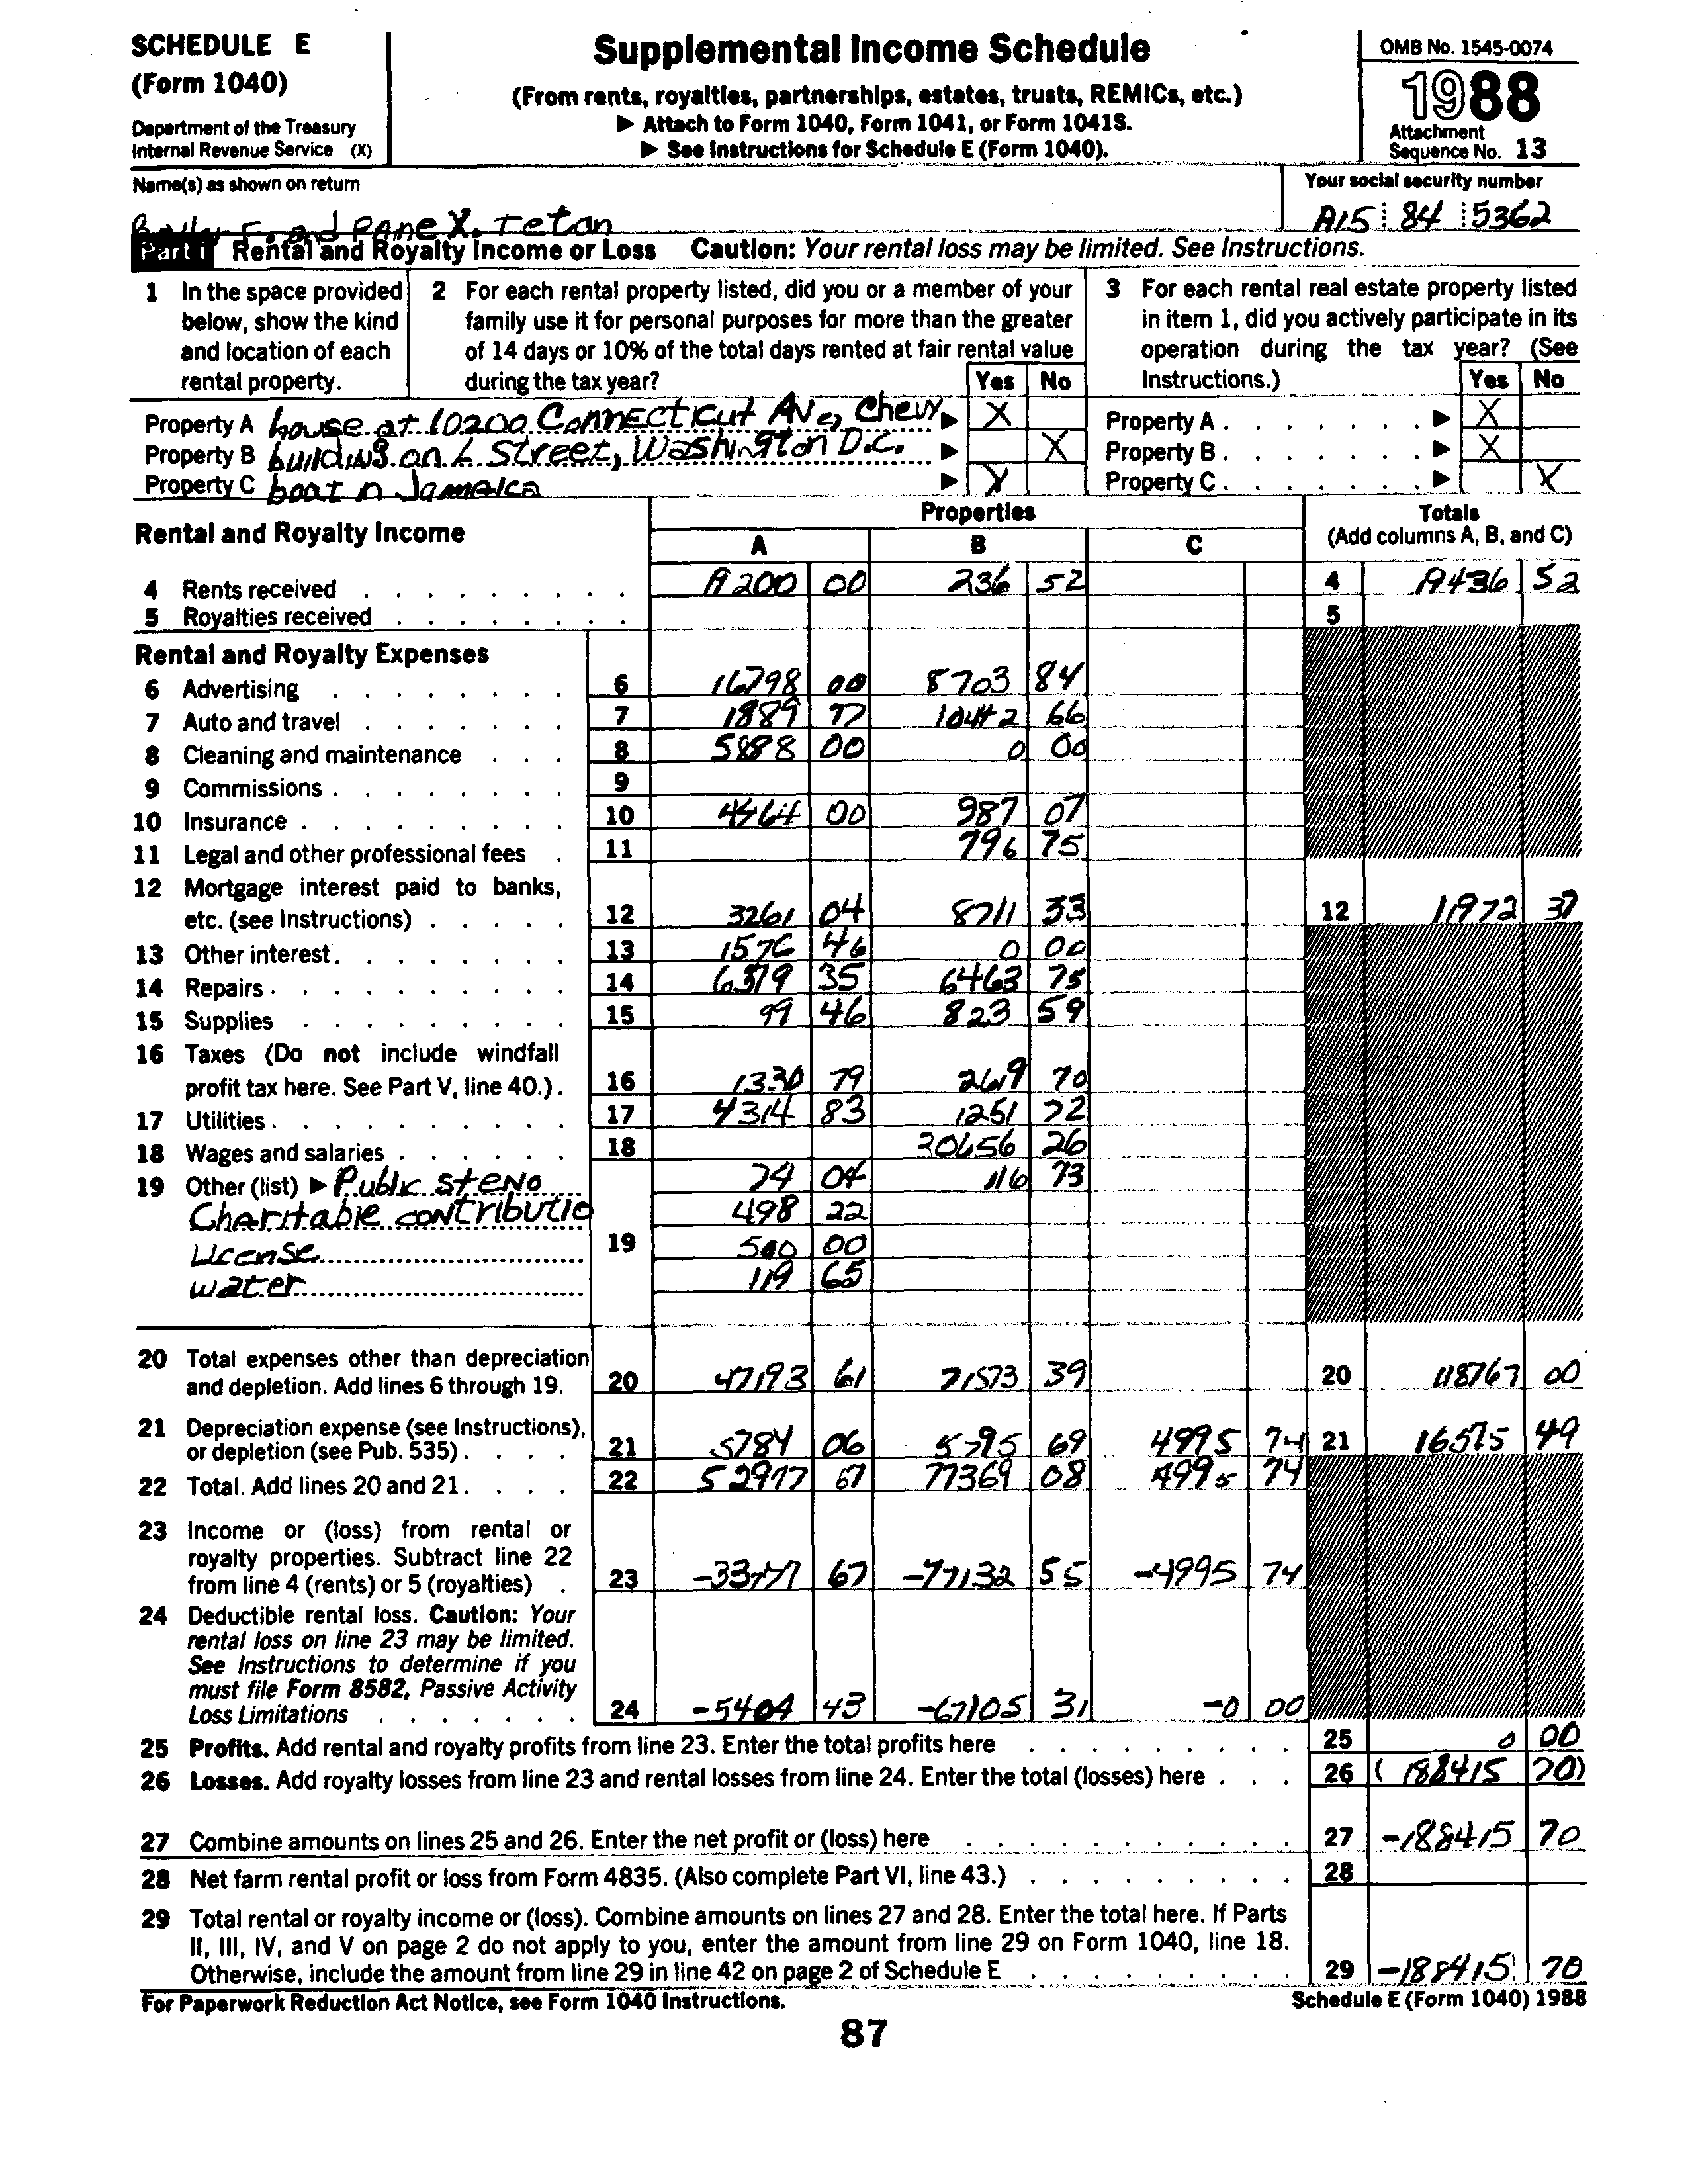 SCHEDULE E
(Form 1040)
Department of the Treasury
Internal Revenue Service (X)
Supplemental Income Schedule
(From rents, royalties, partnerships, estates, trusts, REMICs, etc.)
▶ Attach to Form 1040, Form 1041, or Form 1041S.
▶ See Instructions for Schedule E (Form 1040).
OMB No. 1545-0074
1988
Attachment
Sequence No. 13
Name(s) as shown on return
F. and X. Tetan
Your social security number
A15 84 5362
Part I Rental and Royalty Income or Loss Caution: Your rental loss may be limited. See Instructions.
1 In the space provided below, show the kind and location of each rental property.
2 For each rental property listed, did you or a member of your family use it for personal purposes for more than the greater of 14 days or 10% of the total days rented at fair rental value during the tax year? Yes No
3 For each rental real estate property listed in item 1, did you actively participate in its operation during the tax year? (See Instructions.) Yes No
Property A house at 10200 Connecticut Ave, Chevy ▶ X Property A ▶ X
Property B building on L Street, Washington D.C. ▶ X Property B ▶ X
Property C boat in Jamaica ▶ X Property C ▶ X
Rental and Royalty Income
Properties
A B C
Totals
(Add columns A, B, and C)
4 Rents received A200 00 236 52 4 A436 52
5 Royalties received 5
Rental and Royalty Expenses
6 Advertising 6 16798 00 8703 84
7 Auto and travel 7 1889 77 10442 66
8 Cleaning and maintenance 8 5888 00 0 00
9 Commissions 9
10 Insurance 10 4464 00 987 07
11 Legal and other professional fees 11 796 75
12 Mortgage interest paid to banks,
etc. (see Instructions) 12 3261 04 8711 33 12 11972 37
13 Other interest 13 1576 46 0 00
14 Repairs 14 6379 35 6463 75
15 Supplies 15 99 46 823 59
16 Taxes (Do not include windfall
profit tax here. See Part V, line 40.) 16 1330 79 2619 70
17 Utilities 17 4314 83 1251 72
18 Wages and salaries 18 30656 26
19 Other (list) ▶ Public steno 74 04 116 73
Charitable contributio 498 22
License 19 500 00
water 119 65
20 Total expenses other than depreciation
and depletion. Add lines 6 through 19. 20 47193 61 71573 39 20 118767 00
21 Depreciation expense (see Instructions),
or depletion (see Pub. 535) 21 5784 06 5795 69 4995 74 21 16575 49
22 Total. Add lines 20 and 21. 22 52977 67 77369 08 4995 74
23 Income or (loss) from rental or
royalty properties. Subtract line 22
from line 4 (rents) or 5 (royalties) 23 -33777 67 -77132 55 -4995 74
24 Deductible rental loss. Caution: Your
rental loss on line 23 may be limited.
See Instructions to determine if you
must file Form 8582, Passive Activity
Loss Limitations 24 -5404 43 -67105 31 -0 00
25 Profits. Add rental and royalty profits from line 23. Enter the total profits here 25 0 00
26 Losses. Add royalty losses from line 23 and rental losses from line 24. Enter the total (losses) here 26 (188415 70)
27 Combine amounts on lines 25 and 26. Enter the net profit or (loss) here 27 -188415 70
28 Net farm rental profit or loss from Form 4835. (Also complete Part VI, line 43.) 28
29 Total rental or royalty income or (loss). Combine amounts on lines 27 and 28. Enter the total here. If Parts
II, III, IV, and V on page 2 do not apply to you, enter the amount from line 29 on Form 1040, line 18.
Otherwise, include the amount from line 29 in line 42 on page 2 of Schedule E 29 -188415 70
For Paperwork Reduction Act Notice, see Form 1040 Instructions. Schedule E (Form 1040) 1988
87